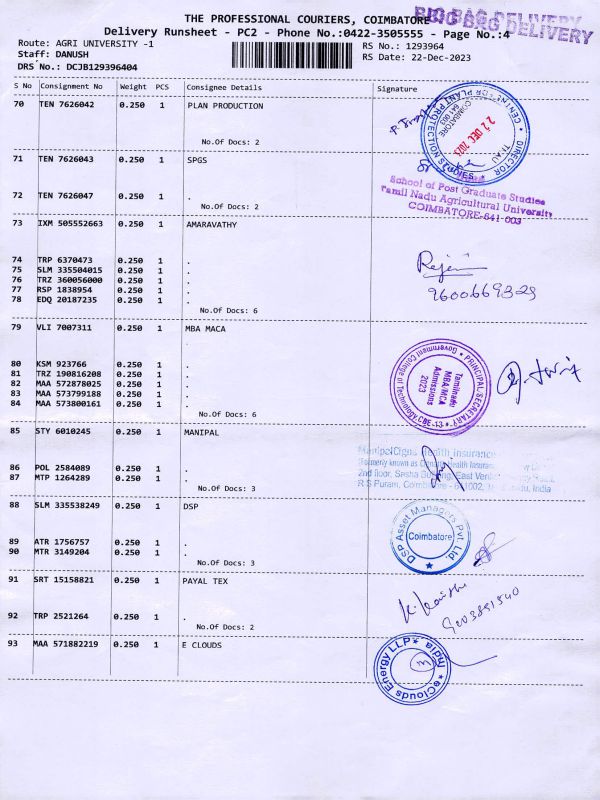 THE PROFESSIONAL COURIERS, COIMBATORE
BIG BAG DELIVERY
Delivery Runsheet - PC2 - Phone No.:0422-3505555 - Page No.:4
Route: AGRI UNIVERSITY -1
RS No.: 1293964
Staff: DANUSH
RS Date: 22-Dec-2023
DRS No.: DCJB129396404
S No Consignment No Weight PCS Consignee Details Signature
70 TEN 7626042 0.250 1 PLAN PRODUCTION
No.Of Docs: 2
DIRECTOR
CENTRE FOR PLANT PROTECTION STUDIES
TNAU
COIMBATORE
641 003
22 DEC 2023
71 TEN 7626043 0.250 1 SPGS
School of Post Graduate Studies
Tamil Nadu Agricultural University
COIMBATORE-641 003
72 TEN 7626047 0.250 1 .
No.Of Docs: 2
73 IXM 505552663 0.250 1 AMARAVATHY
74 TRP 6370473 0.250 1 .
75 SLM 335504015 0.250 1 .
76 TRZ 360056000 0.250 1 .
77 RSP 1838954 0.250 1 .
78 EDQ 20187235 0.250 1 .
No.Of Docs: 6
9600669329
79 VLI 7007311 0.250 1 MBA MACA
80 KSM 923766 0.250 1 .
81 TRZ 190816208 0.250 1 .
82 MAA 572878025 0.250 1 .
83 MAA 573799188 0.250 1 .
84 MAA 573800161 0.250 1 .
No.Of Docs: 6
PRINCIPAL/SECRETARY
Government College of Technology, CBE-13
Tamilnadu
MBA/MCA
Admissions
2023
85 STY 6010245 0.250 1 MANIPAL
86 POL 2584089 0.250 1 .
87 MTP 1264289 0.250 1 .
No.Of Docs: 3
ManipalCigna Health Insurance
(Formerly known as Health Insurance
2nd floor, Sesha East
R S Puram, Coimbatore - 641002, India
88 SLM 335538249 0.250 1 DSP
89 ATR 1756757 0.250 1 .
90 MTR 3149204 0.250 1 .
No.Of Docs: 3
DSP Asset Managers Pvt. Ltd.
Coimbatore
91 SRT 15158821 0.250 1 PAYAL TEX
92 TRP 2521264 0.250 1 .
No.Of Docs: 2
93 MAA 571882219 0.250 1 E CLOUDS
eClouds Energy LLP
India